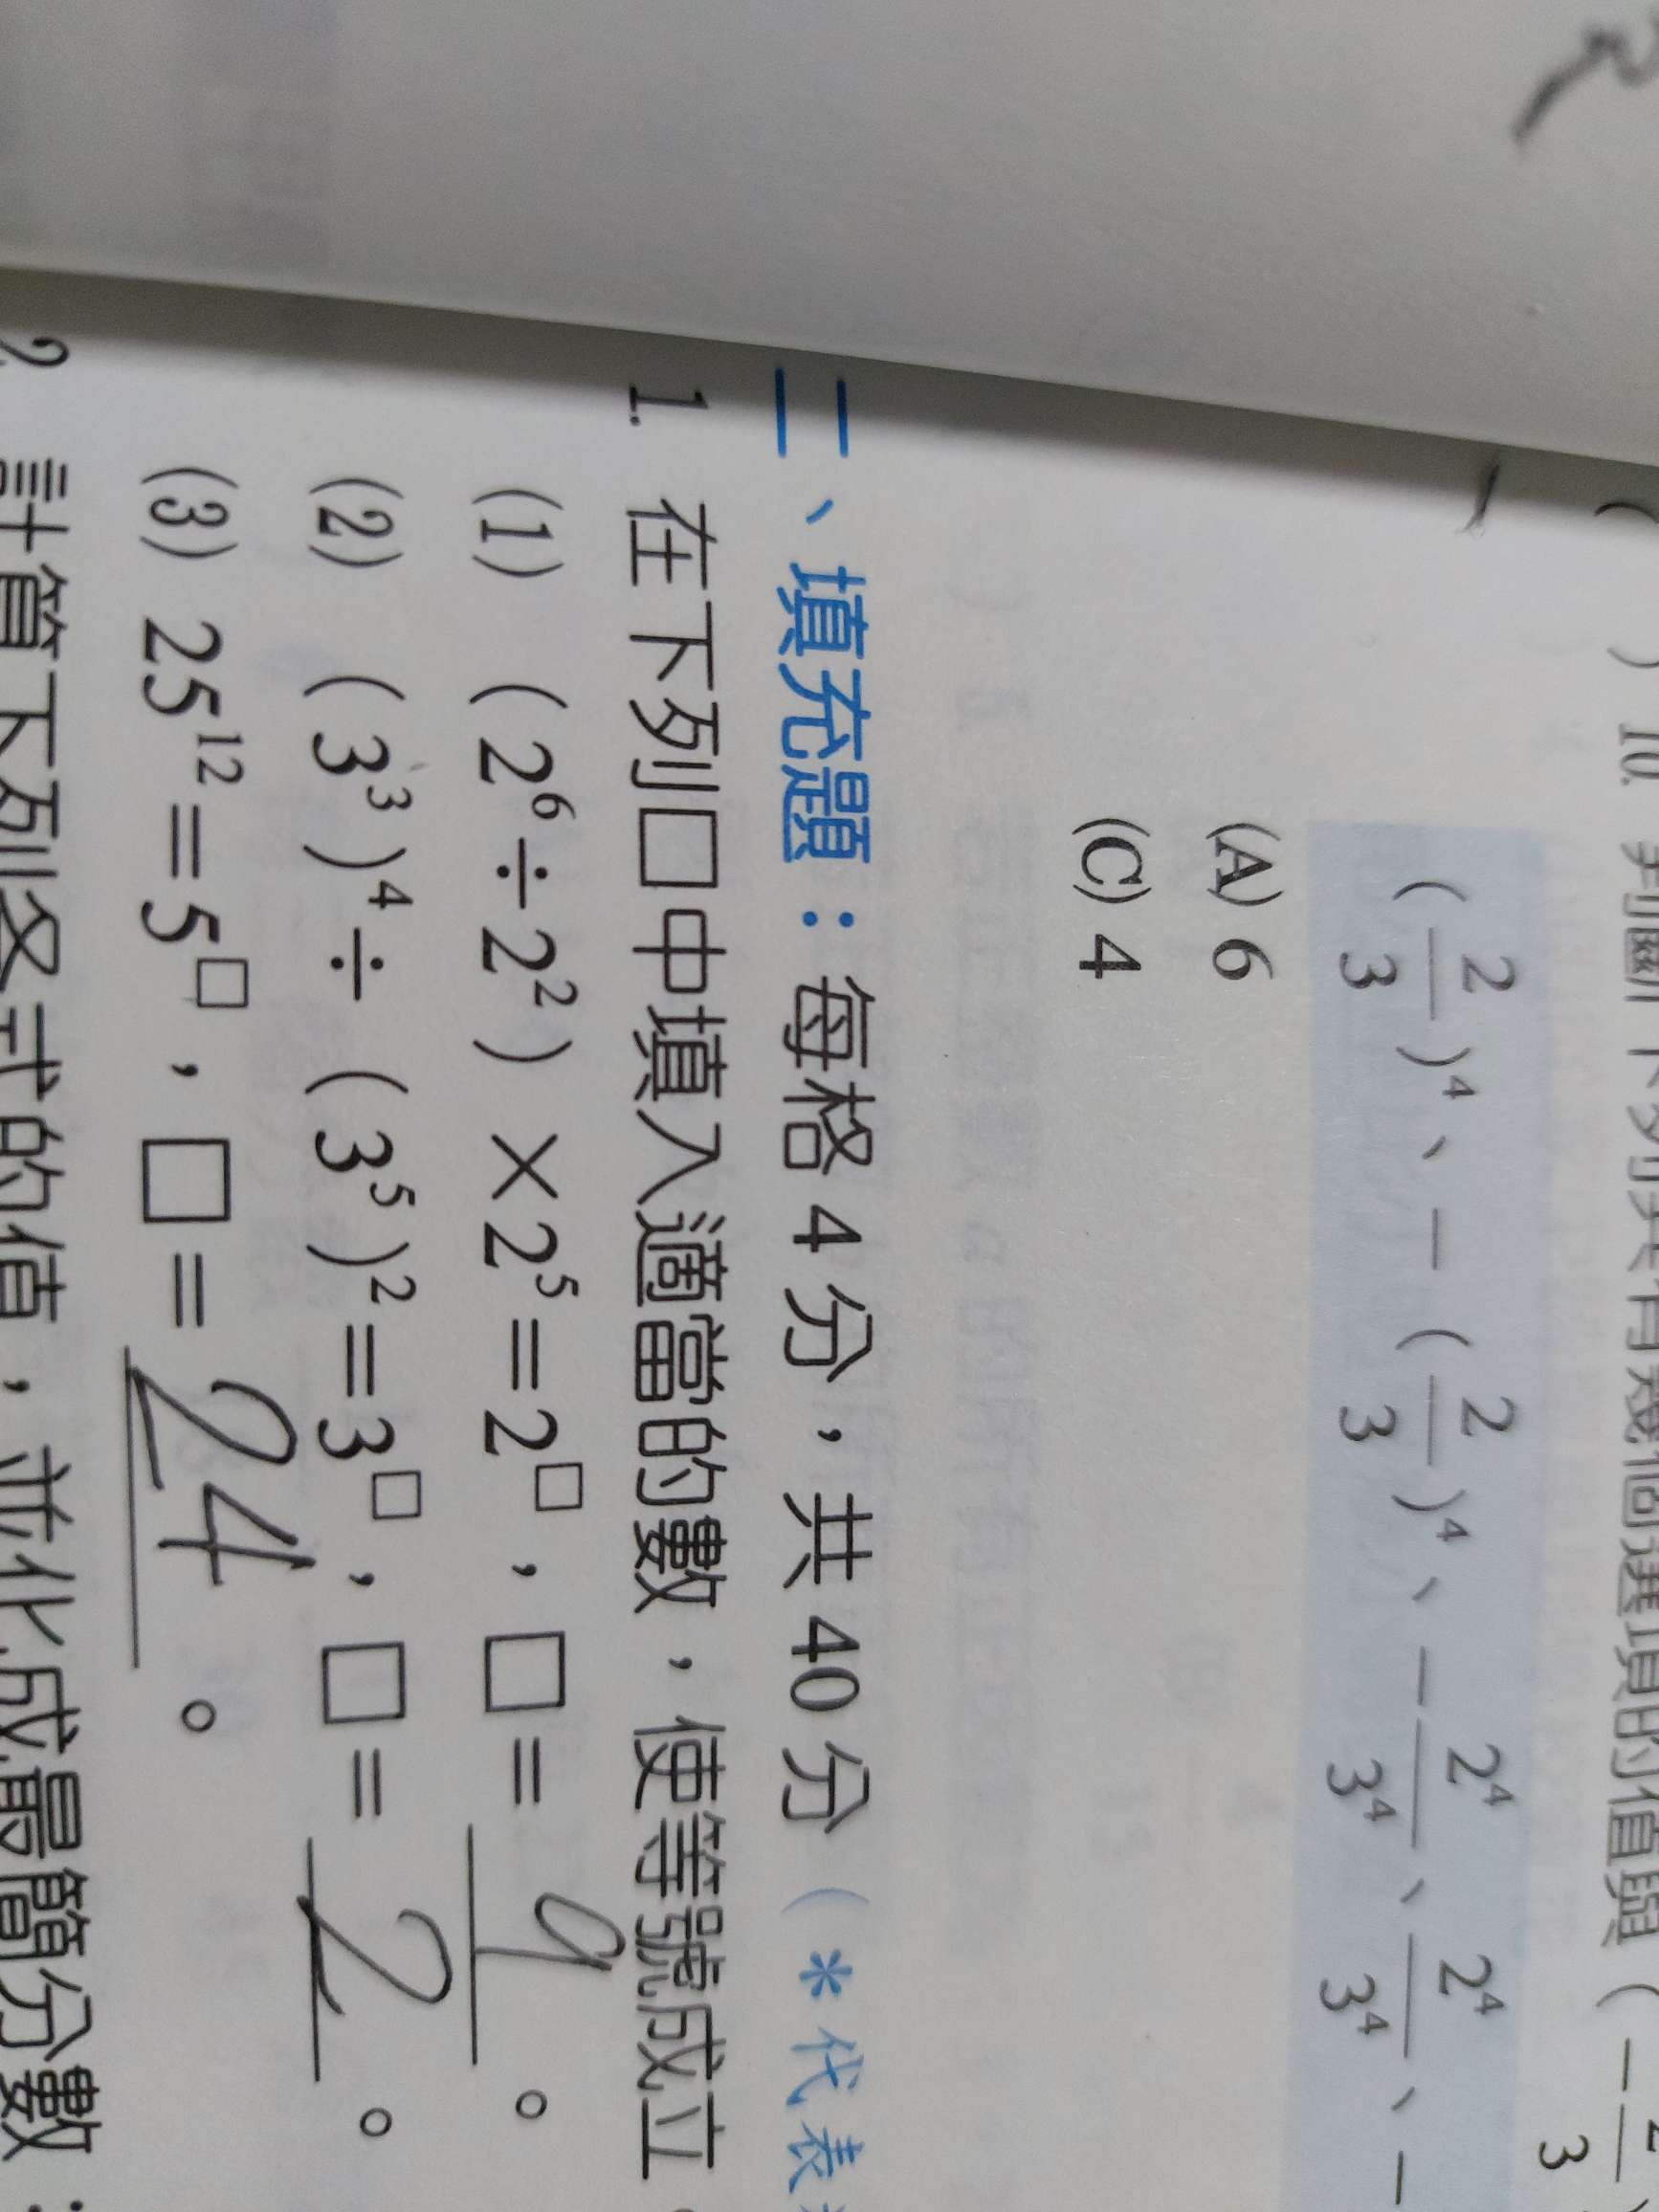 )10. 判斷下列共有幾個選項的值與(-2/3
(2/3)⁴、-(2/3)⁴、-2⁴/3⁴、2⁴/3⁴、-
(A) 6
(C) 4
二、填充題：每格 4 分，共 40 分（*代表
1. 在下列□中填入適當的數，使等號成立。
(1) (2⁶÷2²)×2⁵=2^□，□= 9 。
(2) (3³)⁴÷(3⁵)²=3^□，□= 2 。
(3) 25¹²=5^□，□= 24 。
2. 計算下列各式的值，並化成最簡分數：